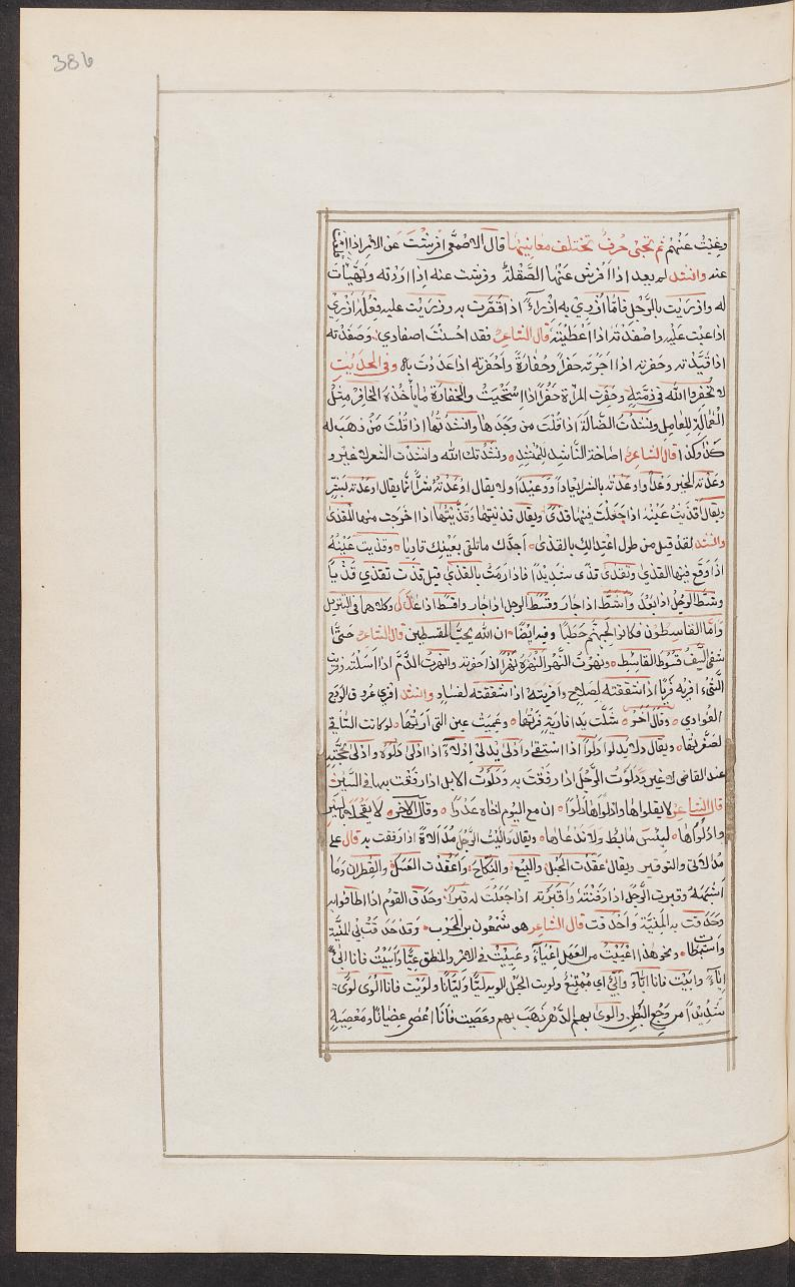 386
وغنيت عنهم ثم تجئ حرف تختلف معانيها قال الاصمعي افرشت عن الامر اذا
عنه وانشد لم يعد اذا افرش عنها الصقلة وفرشت عنه اذا اردته وتهيأت
له وازريت بالرجل فانا ازري به ازراء اذا قصرت به وزريت عليه فعله ازري
اذا عبت عليه واصفدته اذا اعطيته قال الشاعر فقد احسنت اصفادي وصفدته
اذا قيدته وخفرته اذا اجرته خفرا وخفارة واخفرته اذا غدرت به وفي الحديث
لا تخفروا الله في ذمته وخفرت المراة خفرا اذا استحيت والخفارة ما ياخذه الخافر مثل
العمالة للعامل ونشدت الضالة اذا قلت من وجدها وانشدتها اذا قلت من ذهب له
كذا وكذا قال الشاعر اصاخة الناشد للمنشد ونشدتك الله وانشدت الشعر لا غير و
وعدته الخير وعدا واوعدته بالشر ايعادا ووعيدا ولا يقال اوعدته شرا انما يقال اوعدته بشر
ويقال اقذيت عينه اذا جعلت فيها قذى ويقال قذيتها وقذيتها اذا اخرجت منها القذى
وانشد لقد قيل من طول اعتلالك بالقذى اجدك ما تلقى بعينك قاذيا وقذيت عينه
اذا وقع فيها القذى وتقذى قذى شديدا فاذا رمت بالقذى قيل قذت تقذي قذيا
وقسط الرجل اذا واقسط اذا جار وقسط الرجل اذا جار واقسط اذا عدل وكلاهما في التنزيل
واما القاسطون فكانوا لجهنم حطبا وفيه ايضا ان الله يحب المقسطين قال الشاعر حتى
شفى السيف قسوط القاسط ونهرت النهر انهره نهرا اذا حفرته وانهرت الدم اذا اسلته وفريت
الشيء افريه فريا اذا شققته لصلاح وافريته اذا شققته لفساد وانشد افري عروق الودج
الغوادي وقال اخر شلت يدا فارية فرتها وعميت عين التي ارتها لو كانت الساقي
لصغرتها ويقال دلا يدلوا دلوا اذا استقى وادلى يدلي ادلاء اذا ادلى دلوه وادلى بحجته
عند القاضي لا غير ودلوت الرجل اذا رفقت به ودلوت الابل اذا رفقت بها في السير
قال الشاعر لا تقلواها وادلواها دلوا ان مع اليوم اخاه غدوا وقال الاخر لا تعجلا بالسير
وادلواها لبئس ما بطء ولا نرعاها ويقال داليت الرجل مدالاة اذا رفقت به قال على
ويقال عقدت الحبل والبيع والنكاح واعقدت العسل والقطران وما
اشبهه وقبرت الرجل اذا دفنته واقبرته اذا جعلت له قبرا وحدق القوم اذا اطافوا به
وحدقت به المنية واحدقت قال الشاعر هو شمعون بن الحرب وقد حدقت بي المنية
واستبطا ونحو هذا اعييت من العمل اعياء وعييت في الامر والمنطق عيا وابيت فانا ابي
اباء وابيت فانا اباء وابي اي ممتنع ولويت الحبل الويه ليا وليانا ولويت فانا الوى لوى
شديدا من وجع البطن والوى بهم الدهر ذهب بهم وعصيت فانا اعصى عصيانا ومعصية